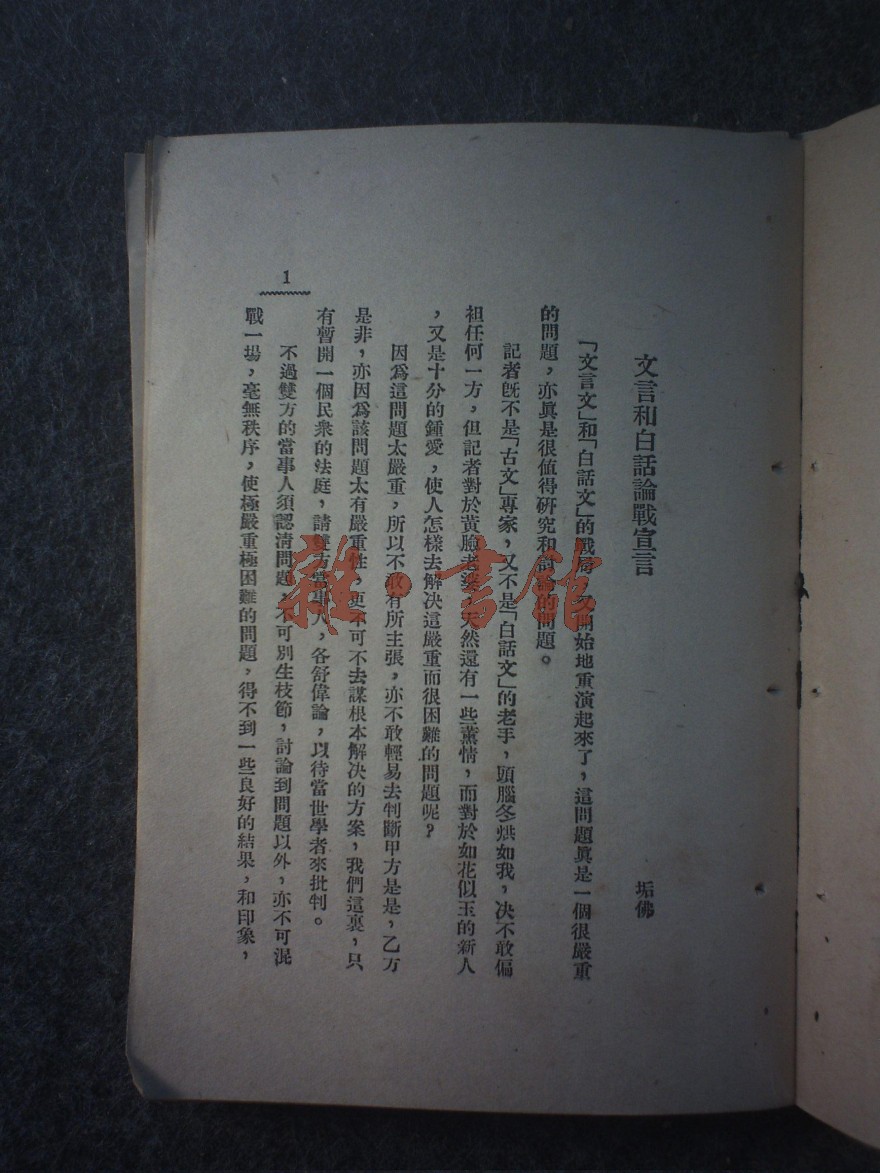 文言和白話論戰宣言
垢佛
「文言文」和「白話文」的戰局，又開始地重演起來了，這問題眞是一個很嚴重
的問題，亦眞是很値得硏究和討論的問題。
記者旣不是「古文」專家，又不是「白話文」的老手，頭腦冬烘如我，决不敢偏
袒任何一方，但記者對於黃臉老婆，天然還有一些薰情，而對於如花似玉的新人
，又是十分的鍾愛，使人怎樣去解决這嚴重而很困難的問題呢？
因爲這問題太嚴重，所以不敢有所主張，亦不敢輕易去判斷甲方是是，乙方
是非，亦因爲該問題太有嚴重性，更不可不去謀根本解决的方案，我們這裏，只
有暫開一個民衆的法庭，請雙方當事人，各舒偉論，以待當世學者來批判。
不過雙方的當事人須認淸問題，不可別生枝節，討論到問題以外，亦不可混
戰一場，毫無秩序，使極嚴重極困難的問題，得不到一些良好的結果，和印象，
1
雜·書館